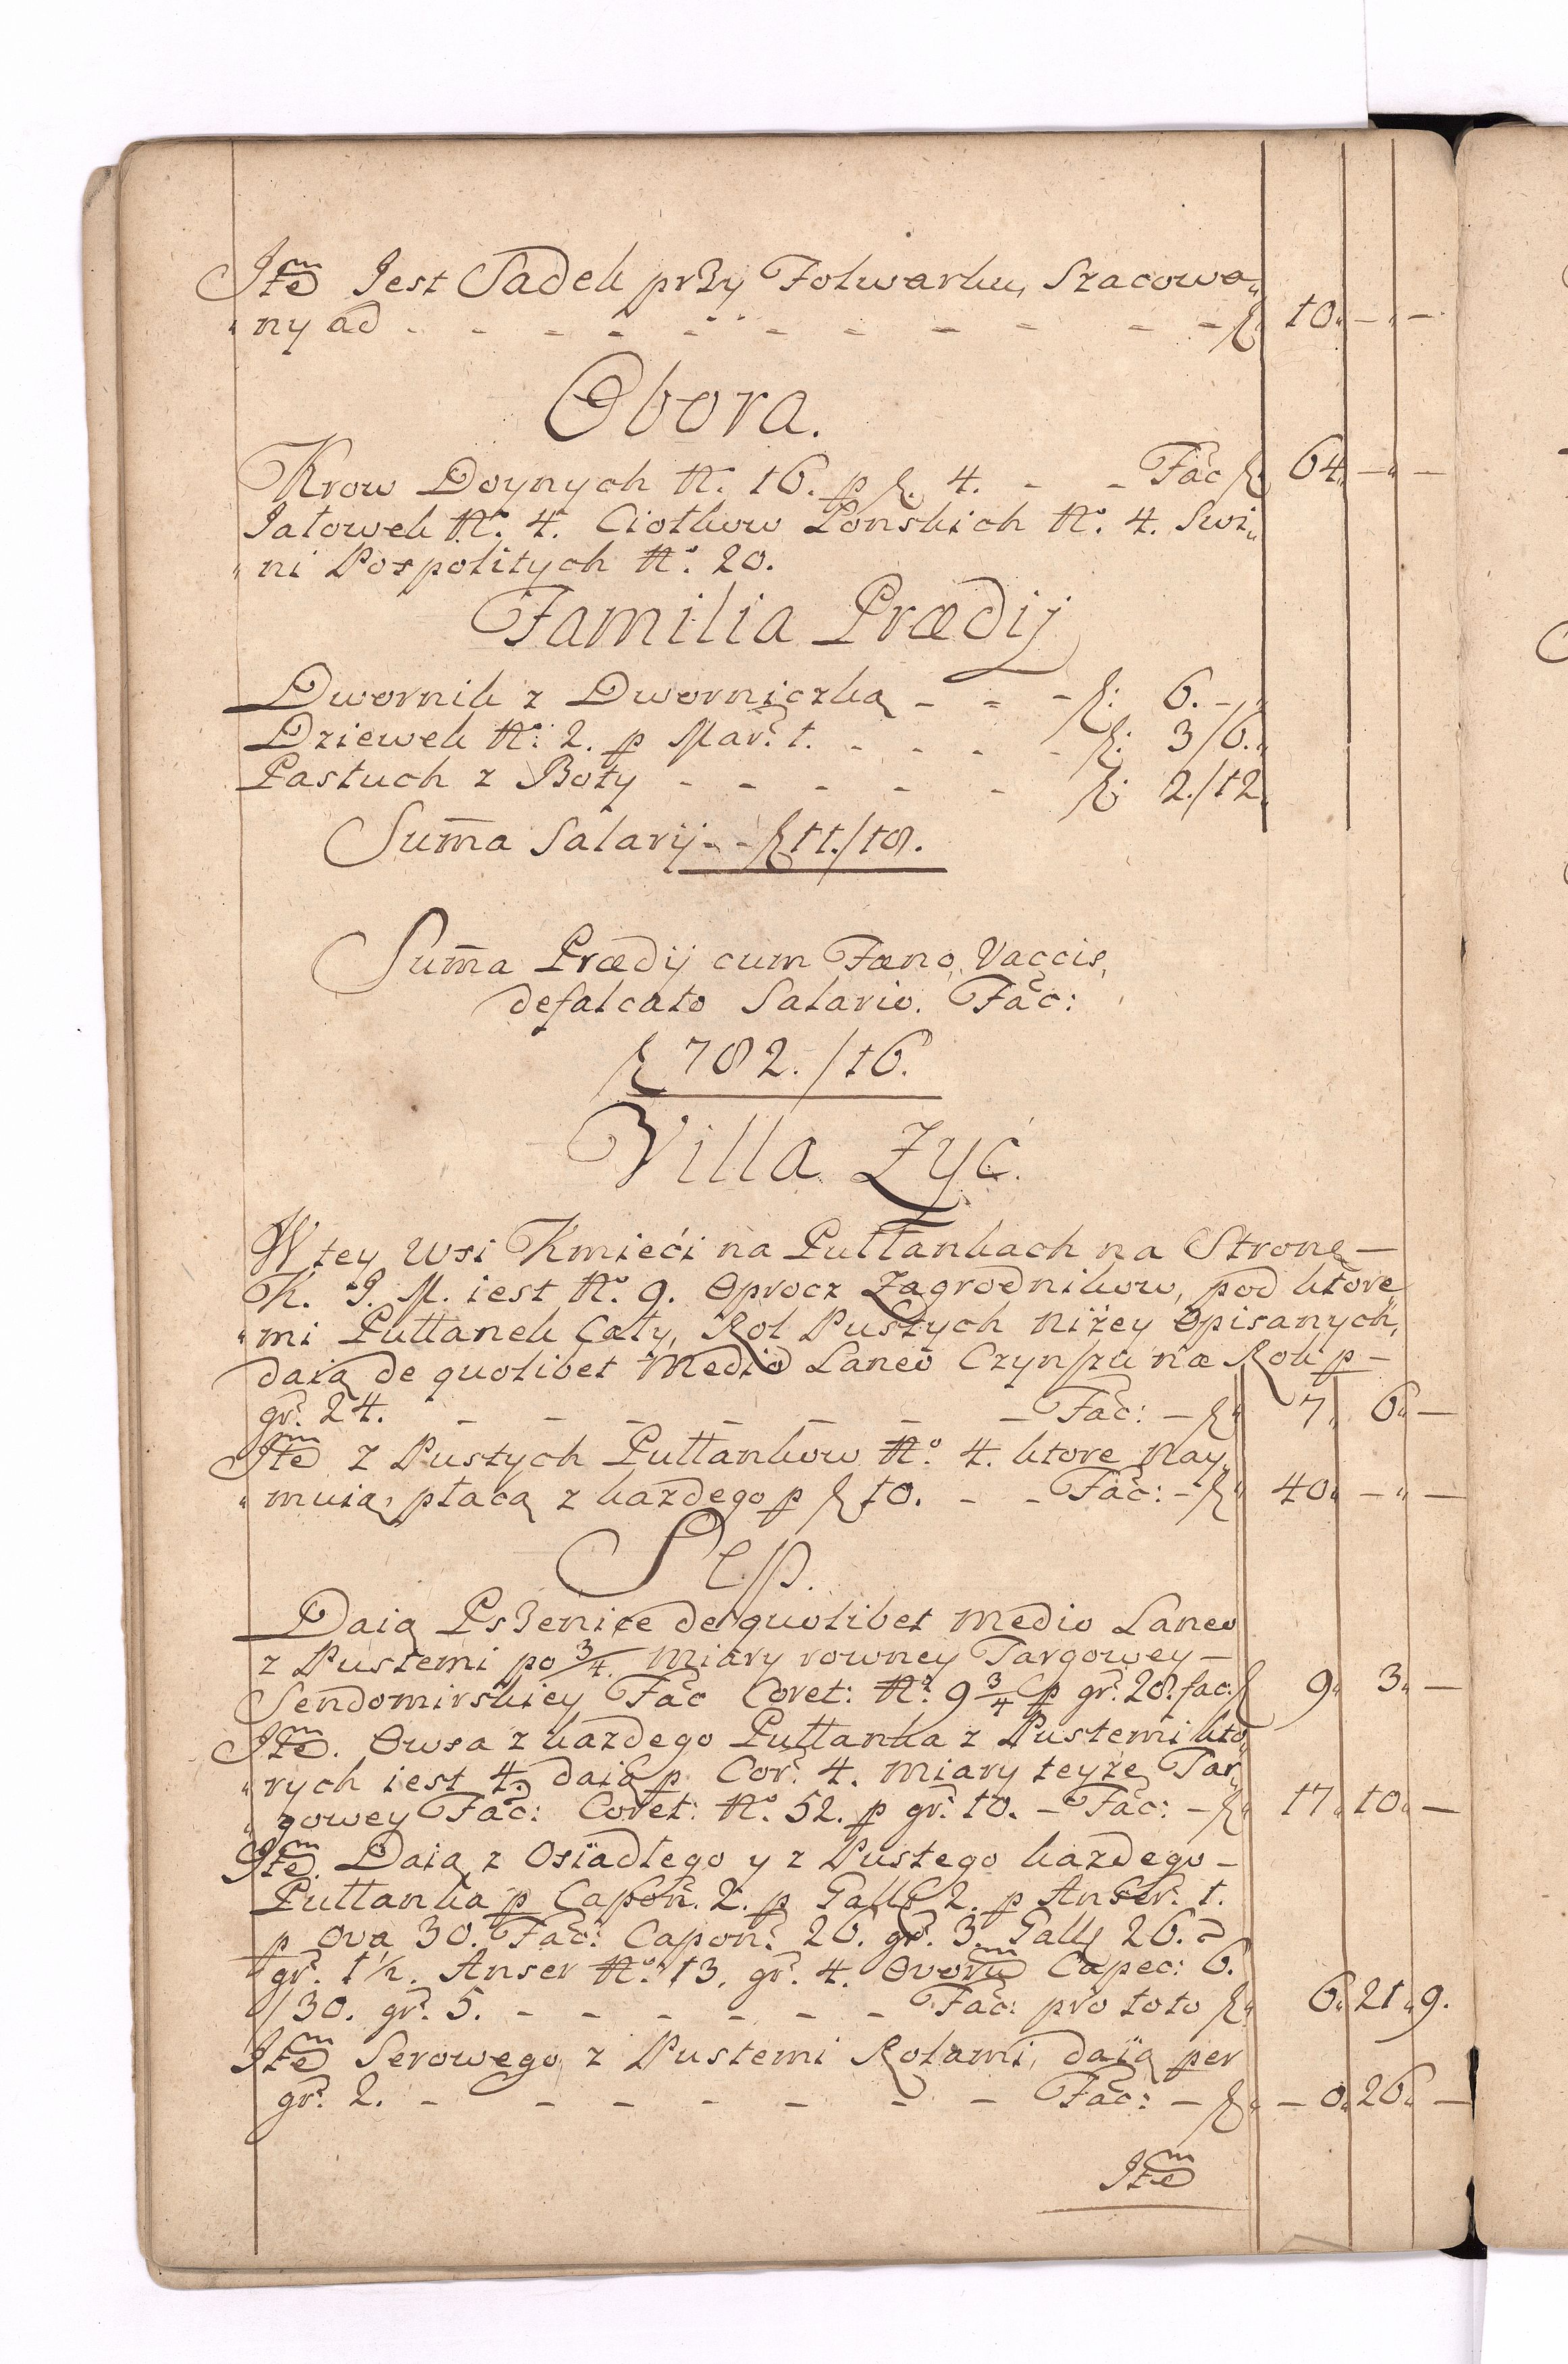 Jtem Jest Sadek przy Folwarku, Szacowa„
„ny ad - - - - - - - - - - - f. 10„ —„ —
Obora.
Krow Doynych N. 16. p f. 4. - - Fac f. 64„ —„ —
Jałowek No. 4. Ciołkow Łonskich No. 4. Swi„
„ni Pospolitych No. 20.
Familia Prædij
Dwornik z Dworniczką - - - f: 6. -„
Dziewek No: 2. p Mar: 1. - - - - f: 3/6.„
Pastuch z Boty - - - - - f: 2./12„
Suma̅ Salarij - - f 11./18.
Suma̅ Prædij cum Fæno, Vaccis,
defalcato Salario. Fac:
f 782./16.
Villa Zyć.
W tey wsi Kmieći na Pułłankach na Stronę —
K. J. M. iest No. 9. Oprocz Zagrodnikow, pod ktore„
„mi Pułłanek Cały, Rol Pustych niżey Opisanych,
daią de quolibet Medio Laneo Czynszu na Rok p —
gr. 24. - - - - - - - Fac: — f„ 7„ 6„ —
Jtem z Pustych Pułłankow No. 4. ktore Nay„
„muią, płacą z każdego p f 10. - - Fac: - f„ 40„ —„ —
Sep.
Daią Pszenice de quolibet medio Laneo
z Pustemi po 3/4. miary rowney Targowey —
Sendomirskiey Fac Coret: Nr. 9 3/4 p gr. 28. fac: f 9„ 3„ —
Jtem. Owsa z każdego Pułłanka z Pustemi kto„
„rych iest 4. daią p Cor. 4. miary teyże Tar„
„gowey Fac: Coret: No. 52. p gr. 10. - Fac: - f„ 17„ 10„ —
Jtem. Daią z Osiadłego y z Pustego każdego —
Pułłanka p Capon. 2. p Gall 2. p Anser. 1.
p ova 30. Fac: Capon. 26. gr. 3. Gall 26. a
gr. 1 1/2. Anser No. 13. gr. 4. Ovorum Capec: 6.
/30. gr. 5. - - - - - - Fac: pro toto f„ 6„ 21„ 9.
Jtem Serowego, z Pustemi Rolami, daią per
gr. 2. - - - - - - - Fac: - f„ — 0„ 26„ —
Jtem